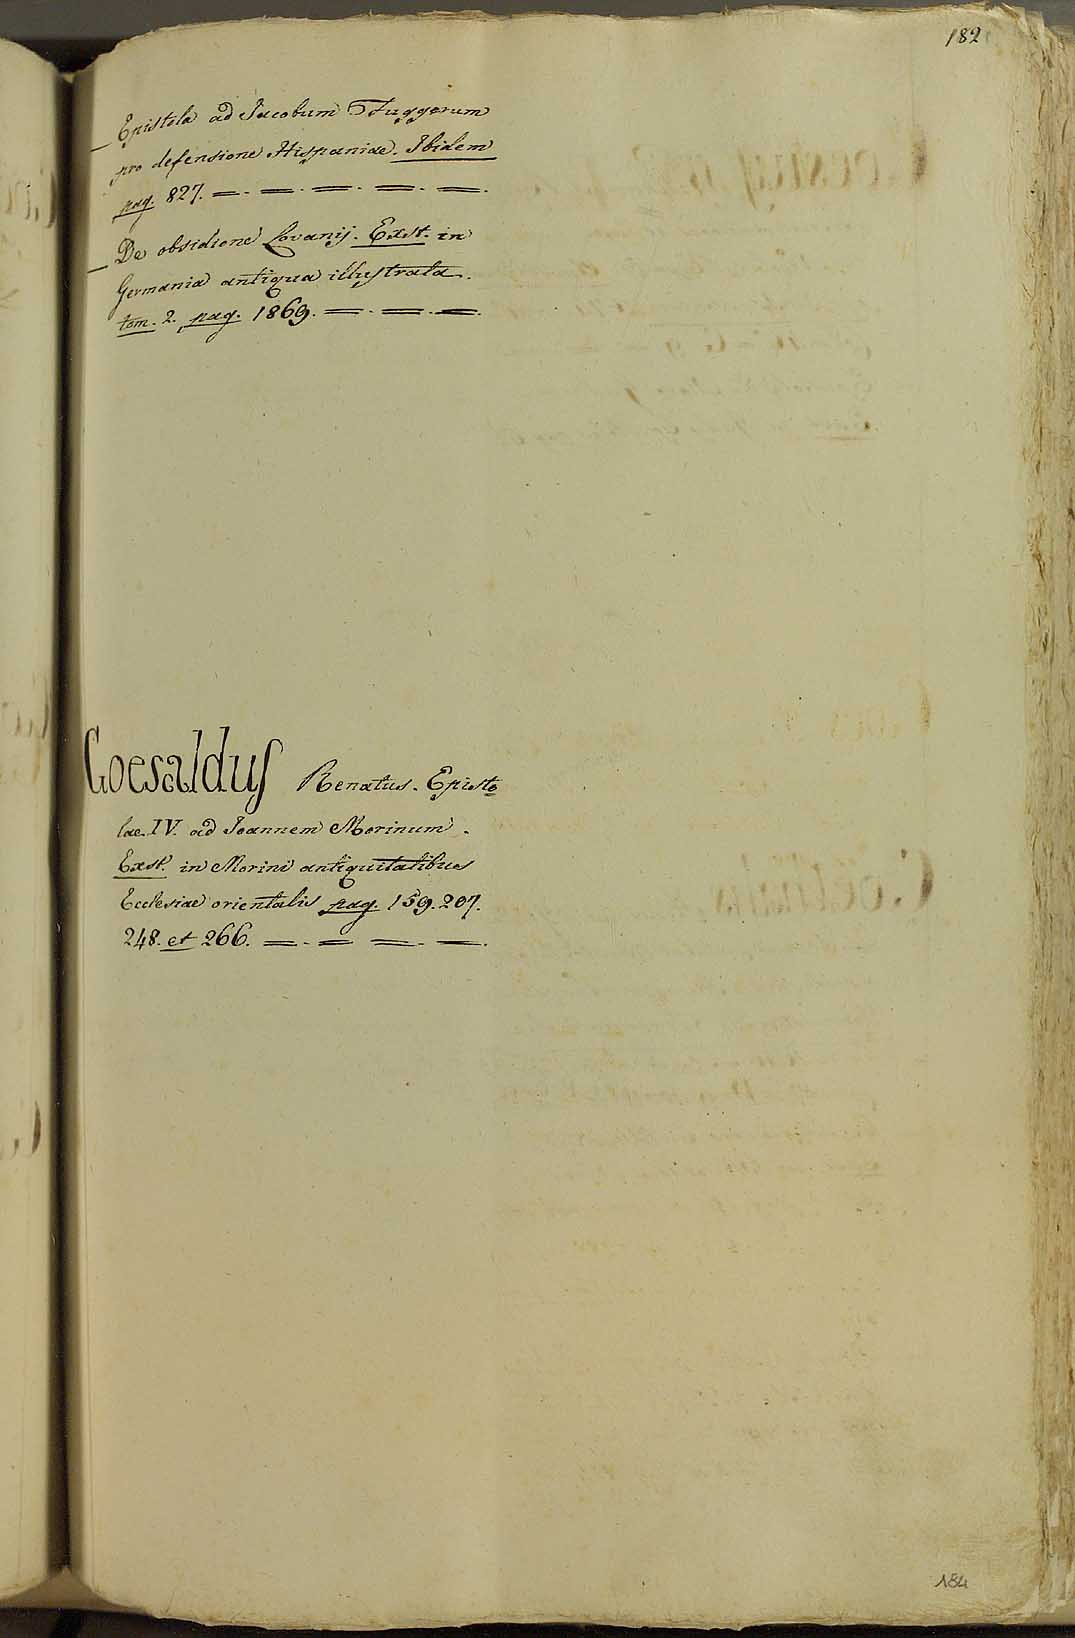 182
Epistola ad Jacobum Fuggerum
pro defensione Hispaniae. Ibidem
pag. 827. = . = . = . = . = .
De obsidione Lovanij. Exst. in
Germania antiqua illustrata.
tom. 2. pag. 1869. = . = . = .
Coesaldus Renatus. Episto
lae IV. ad Joannem Morinum.
Exst. in Morini antiquitatibus
Ecclesiae orientalis pag. 159. 207.
248. et 266. = . = . = . = .
184